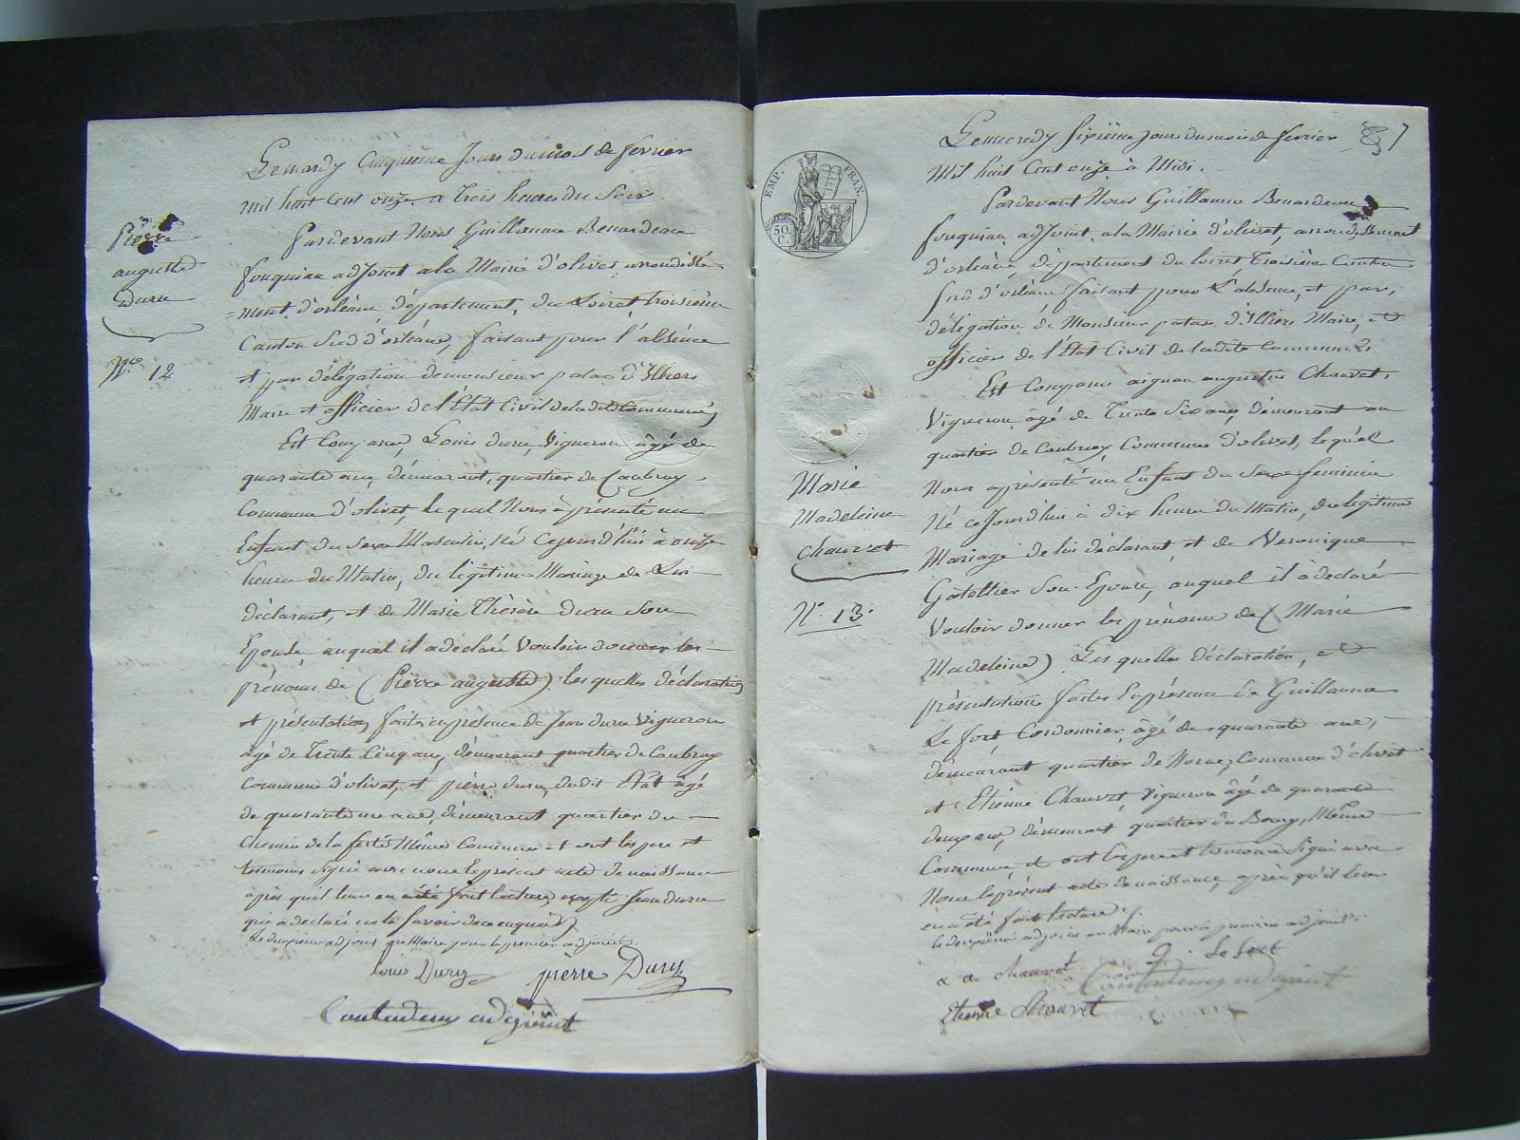 Pierre
auguste
Duru
N.o 12
Le mardy Cinquieme Jour du mois de fevrier
mil huit Cent onze a trois heures du Soir.
Pardevant Nous Guillaume Benardeau
fouquiau adjoint a la Mairie d'olivet, arrondisse
=ment d'orléans département, du Loiret, troisième
Canton Sud d'orléans, faisant pour l'absence
et par délégation de monsieur patas d'Illiers
Maire et officier de l'Etat Civil de ladite Commune,
Est Comparu, Louis duru, Vigneron âgé de
quarante ans demeurant, quartier de Caubray
Commune d'olivet, lequel Nous à présenté un
Enfant du Sexe Masculin, Né Cejourd'hui à onze
heures du Matin, du légitime Mariage de Lui
déclarant, et de Marie Thérèse duru Son
Epouse, auquel il a déclaré Vouloir donner les
prénoms de (Pierre auguste). les quelles déclaration
et présentation faites en présence de Jean duru Vigneron
âgé de Trente Cinq ans, demeurant quartier de Caubray
Commune d'olivet, et pierre duru, dudit Etat âgé
de quarante un ans, demeurant quartier du
Chemin de la ferté Même Commune et ont les pere et
temoins signé avec nous le présent acte de naissance
après qu'il leur en a été fait lecture excepté Jean duru
qui a déclaré ne le savoir de ce enquis
le deuxieme adjoint au Maire pour le premier adjoint
louis Dury pierre Dury
adjoint
7
Le mercredy Sixième Jour du mois de fevrier
Mil huit Cent onze à Midi.
EMP. FRAN.
50
C.
Marie
Madeleine
Chauvet
N.o 13.
Pardevant Nous Guillaume Benardeau
fouquiau adjoint a la Mairie d'olivet, arrondissement
d'orléans, département du loiret Troisième Canton
Sud d'orléans faisant pour L'absence, et par,
délégation de Monsieur patas d'Illiers Maire, et
officier de l'Etat Civil de ladite Commune,
Est Comparu aignan augustin Chauvet,
Vigneron âgé de Trente Six ans, demeurant au
quartier de Caubray Commune d'olivet, lequel
Nous a présenté un Enfant du Sexe feminin
Né cejourd'hui à dix heures du Matin, du légitime
Mariage de lui déclarant et de Veronique
Gatellier Son Epouse, auquel il à déclaré
Vouloir donner les prénoms de (Marie
Madeleine) Les quelles déclaration, et
présentation faites En présence de Guillaume
Le fort Cordonnier, âgé de quarante ans,
demeurant quartier de Commune d'olivet
et Etienne Chauvet Vigneron âgé de quarante
deux ans, demeurant quartier du Bourg, Même
Commune et ont les pere et temoins Signé avec
Nous le présent acte de naissance, après qu'il leur
en a été fait lecture.
le deuxième adjoint au Maire pour le premier adjoint
a a Chauvet g. Le fort
adjoint
Etienne Chauvet